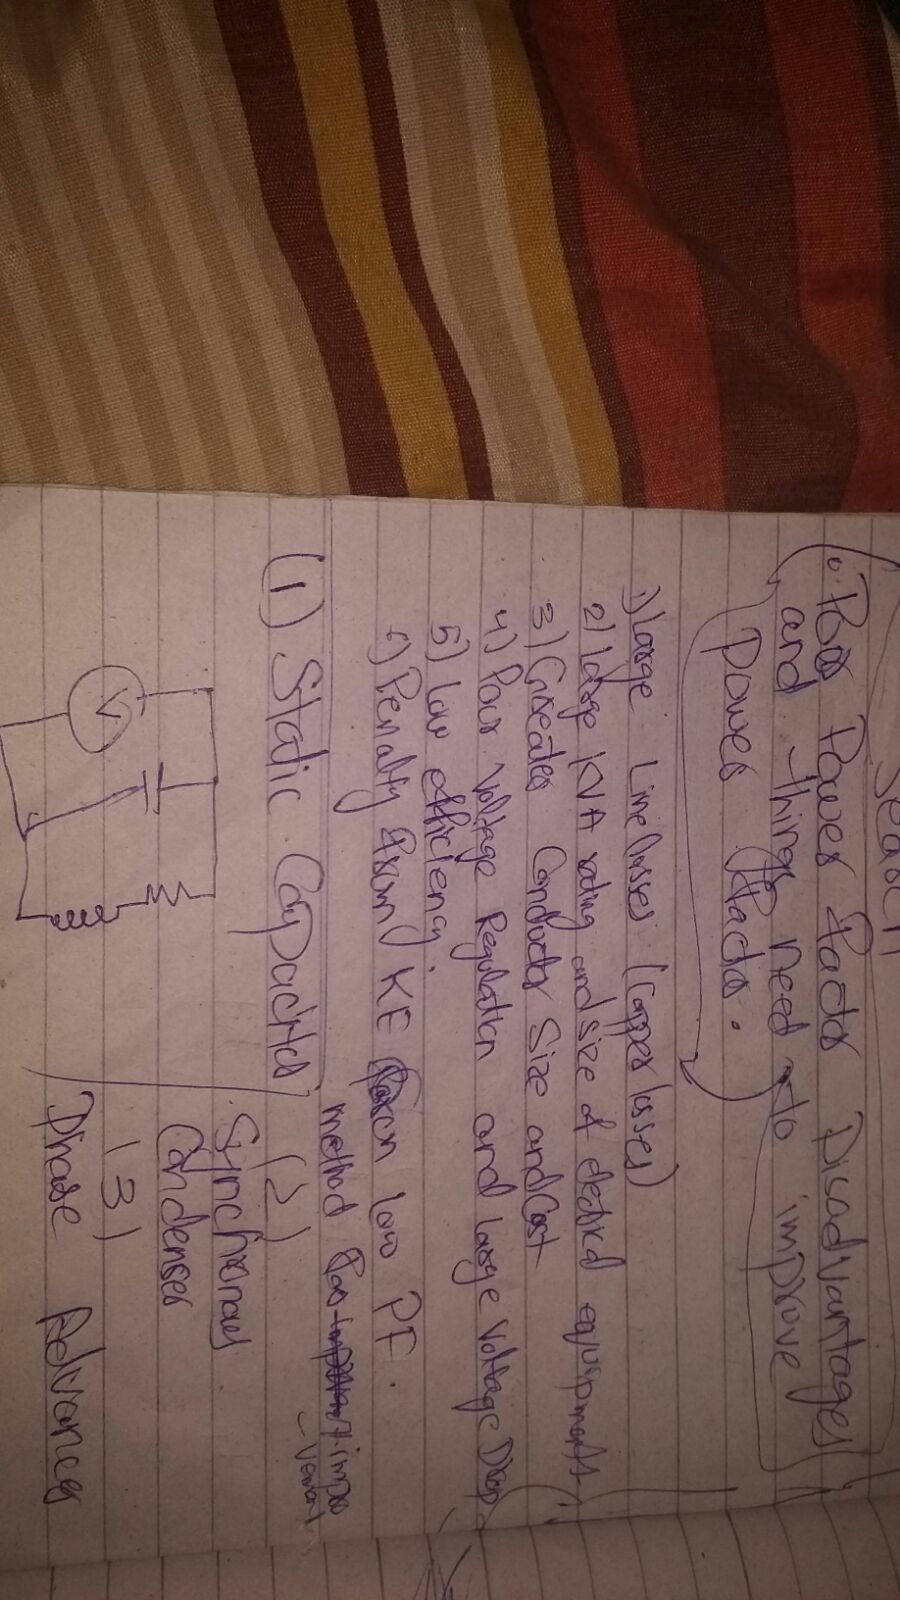 Poor Power factor Disadvantages
and things need to improve
Power factor.
1) Large Line losses (Copper losses)
2) large KVA rating and size of electrical equipments
3) Greater Conductor Size and Cost
4) Poor Voltage Regulation and large Voltage Drop
5) Low efficiency
6) Penalty from KE on low PF.
method for improvement
(1) Static Capacitor
V
(2)
Synchronous
Condenser
(3)
Phase Advancer